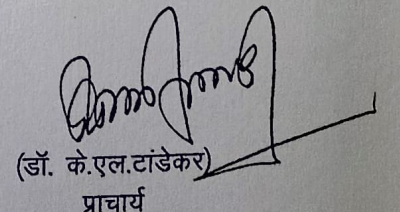 (डॉ. के.एल.टांडेकर)
प्राचार्य